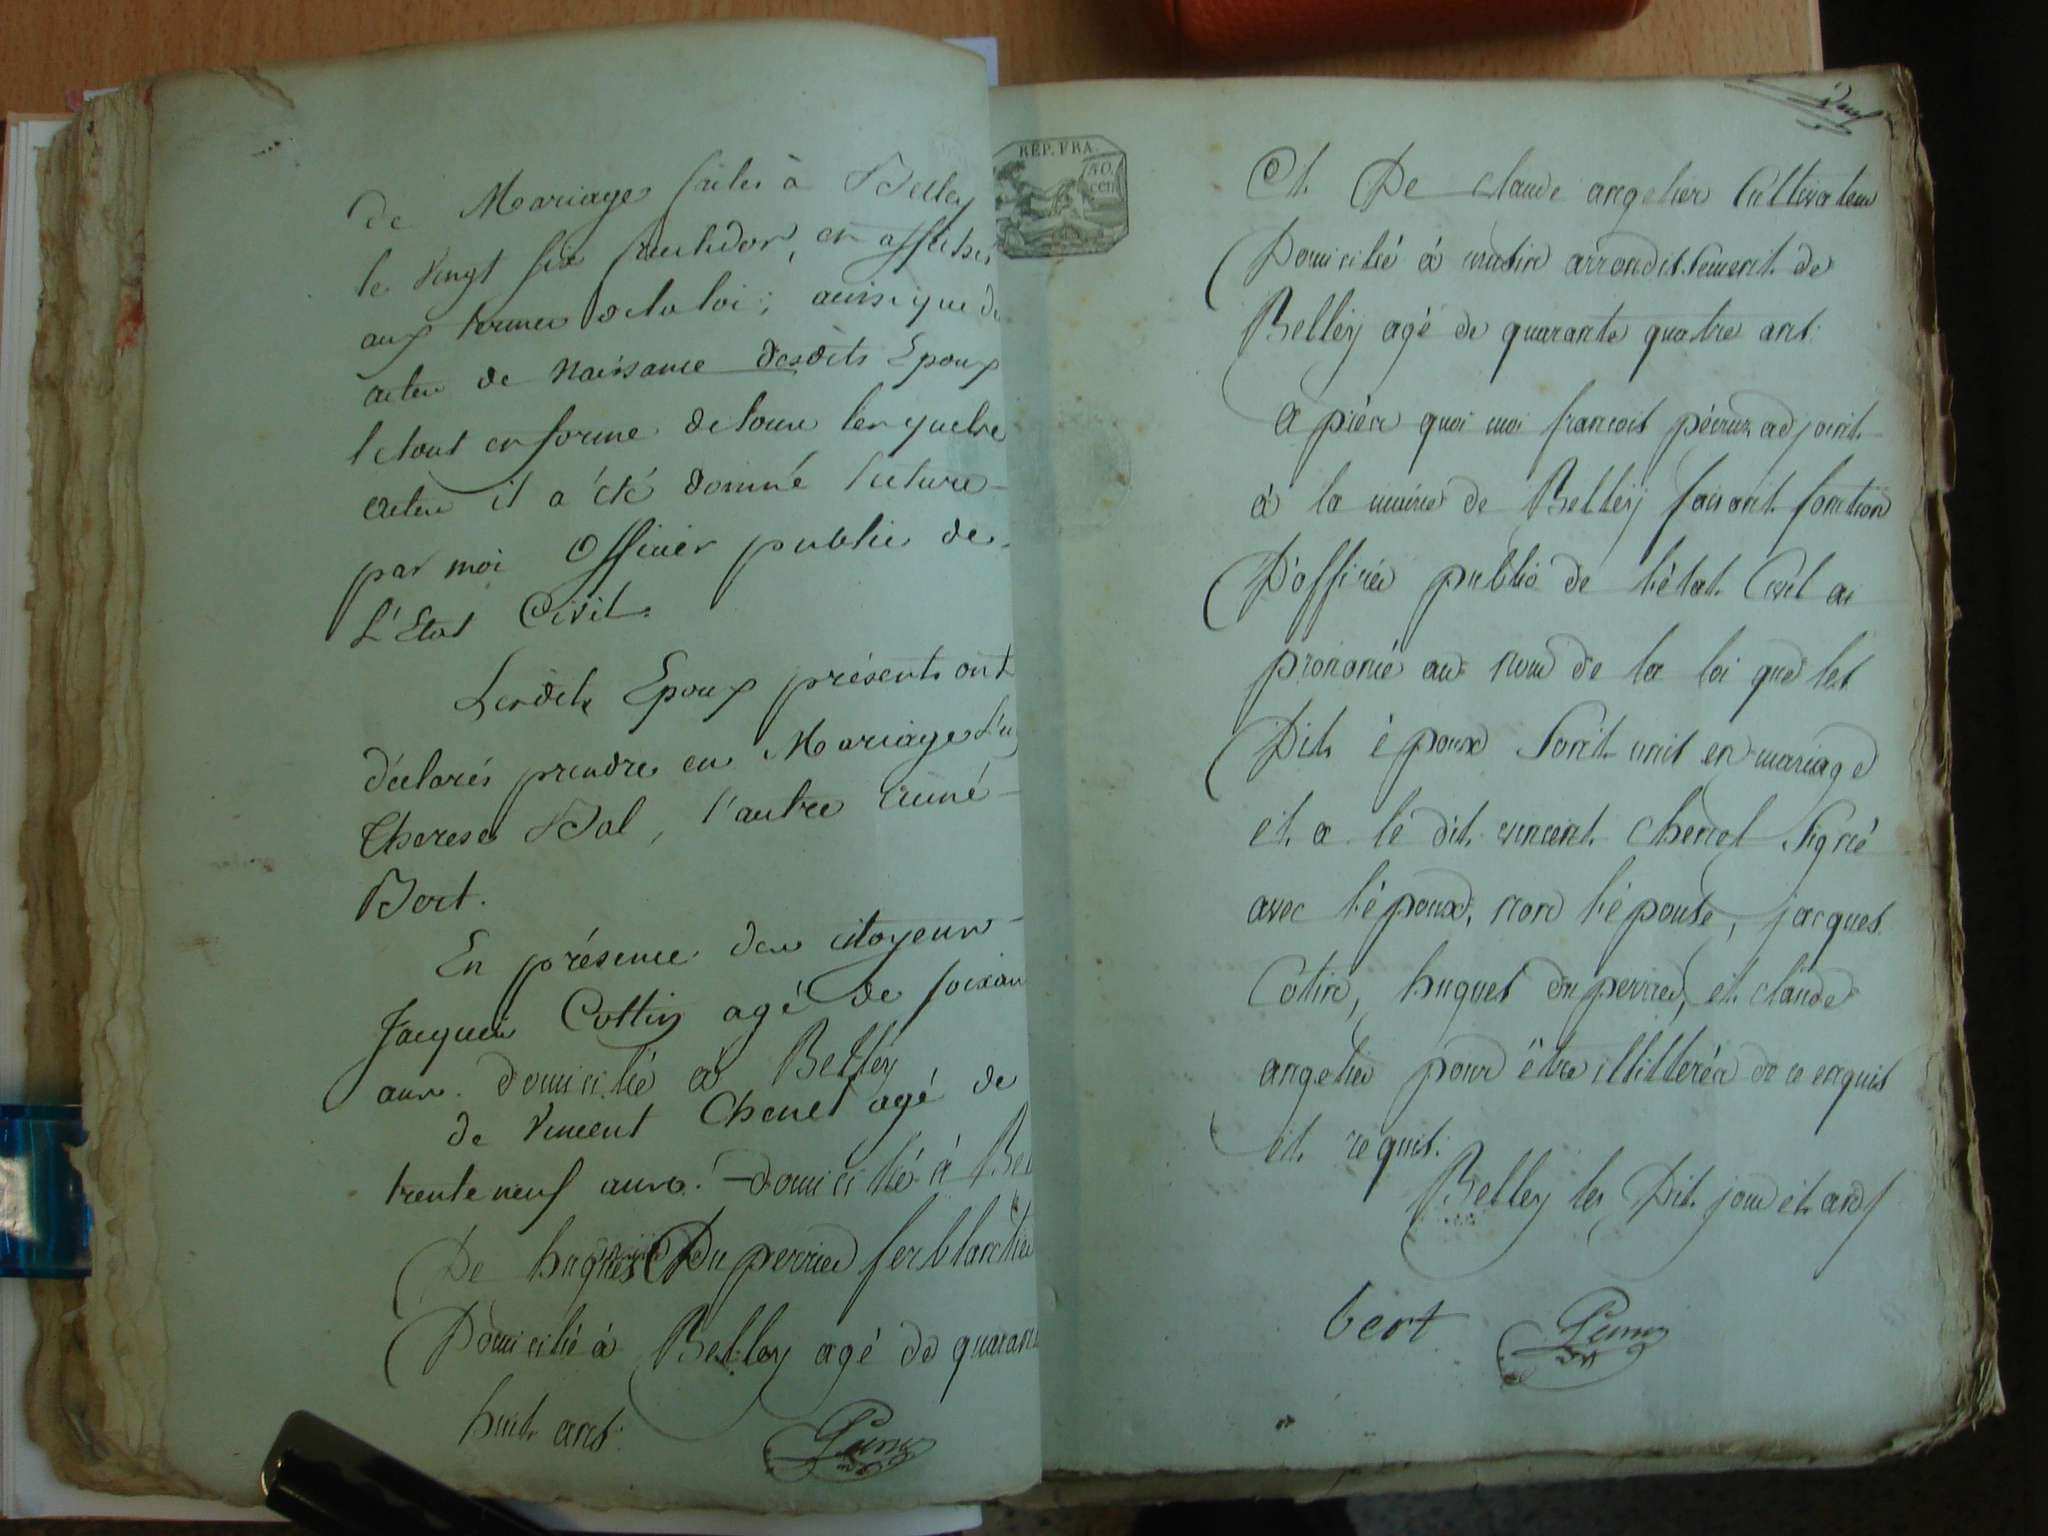 de Mariage faites à Belley
le vingt six fructidor, et affiches
aux termes de la loi; ainsi que de
actes de Naissance desdits Epoux
le tout en forme de tous lesquels
actes il a été donné lecture
par moi Officier public de
L'Etat Civil.
Lesdits Epoux présents ont
déclarés prendre en Mariage L'u
Therese Bal, l'autre
Bert.
En présence des citoyens
Jacques Cottin agé de soixan
ans. domicilié à Belley
de Vincent Chenel agé de
trente neuf ans. domicilié à Bel
De hugues Du perrier ferblantier
Domicilié à Belley agé de quarant
huit ans.
Peruz
REP. FRA.
50
cen
neuf
Et De claude angelier Cultivateur
Domicilié à arrondissement de
Belley agé de quarante quatre ans.
a près quoi moi francois péruz adjoint
à la mairie de Belley faisant fonction
D'officier public de l'état Civil ai
prononcé au nom de la loi que les
Dits époux sont unis en mariage
et a le dit vincent Chenel signé
avec l'époux, non l'épouse, jacques
Cotin, hugues du perrier, et claude
angelier pour être illitterés de ce enquis
et requis.
Belley les Dit jour et an
bert Peruz